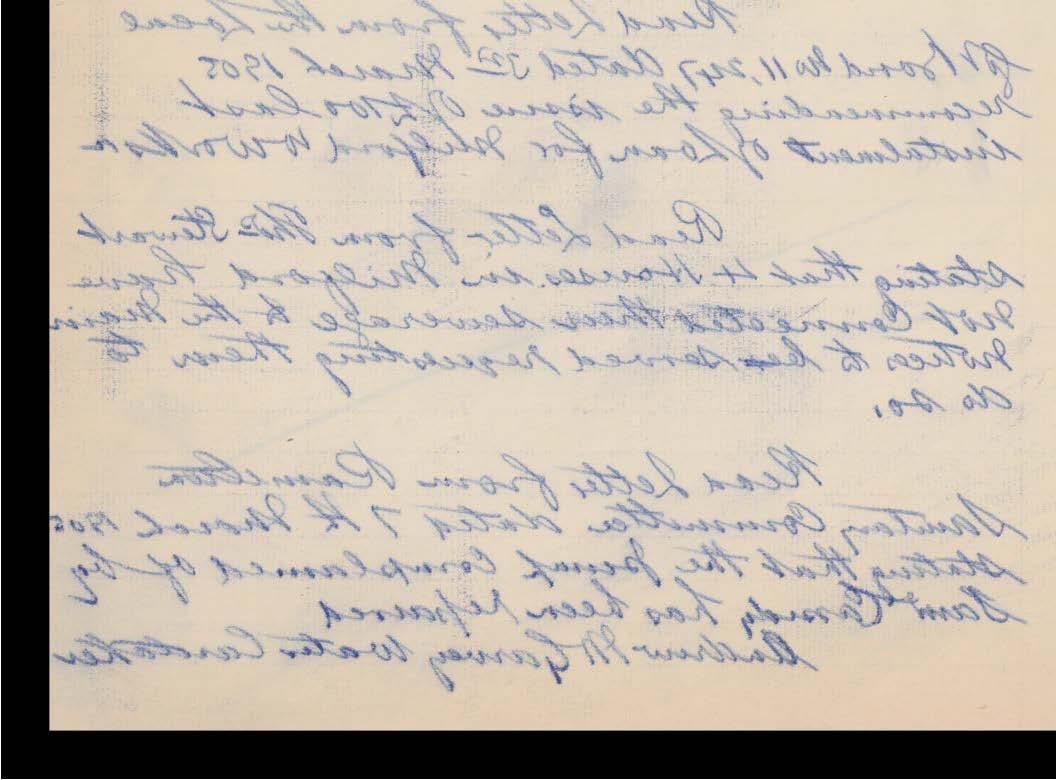 Read Letter from the Local
Gov Board No 11,247 dated 3rd March 1905
recommending the issue of £100 last
instalment of Loan for Milford W Works
Read Letter from Thos Stewart
stating that 4 Houses in Milford have
not Connected their sewerage to the Main
Notices to be served requesting them to
do so.
Read Letter from Ramelton
Sanitary Committee dated 7th March 1905
stating that the pump complained of by
Saml Cassidy has been repaired
Andrew McGarvey Water Caretaker